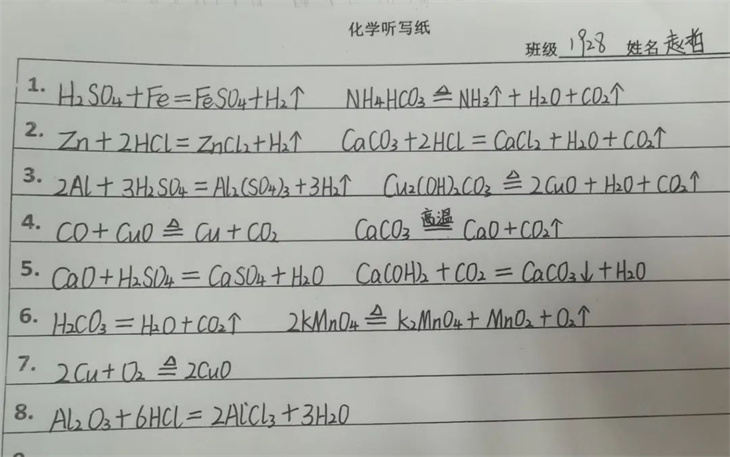 化学听写纸
班级 1928 姓名 赵哲
1. H₂SO₄+Fe=FeSO₄+H₂↑ NH₄HCO₃ ≜ NH₃↑+H₂O+CO₂↑
2. Zn+2HCl=ZnCl₂+H₂↑ CaCO₃+2HCl=CaCl₂+H₂O+CO₂↑
3. 2Al+3H₂SO₄=Al₂(SO₄)₃+3H₂↑ Cu₂(OH)₂CO₃ ≜ 2CuO+H₂O+CO₂↑
4. CO+CuO ≜ Cu+CO₂ CaCO₃ 高温 = CaO+CO₂↑
5. CaO+H₂SO₄=CaSO₄+H₂O Ca(OH)₂+CO₂=CaCO₃↓+H₂O
6. H₂CO₃=H₂O+CO₂↑ 2KMnO₄ ≜ K₂MnO₄+MnO₂+O₂↑
7. 2Cu+O₂ ≜ 2CuO
8. Al₂O₃+6HCl=2AlCl₃+3H₂O